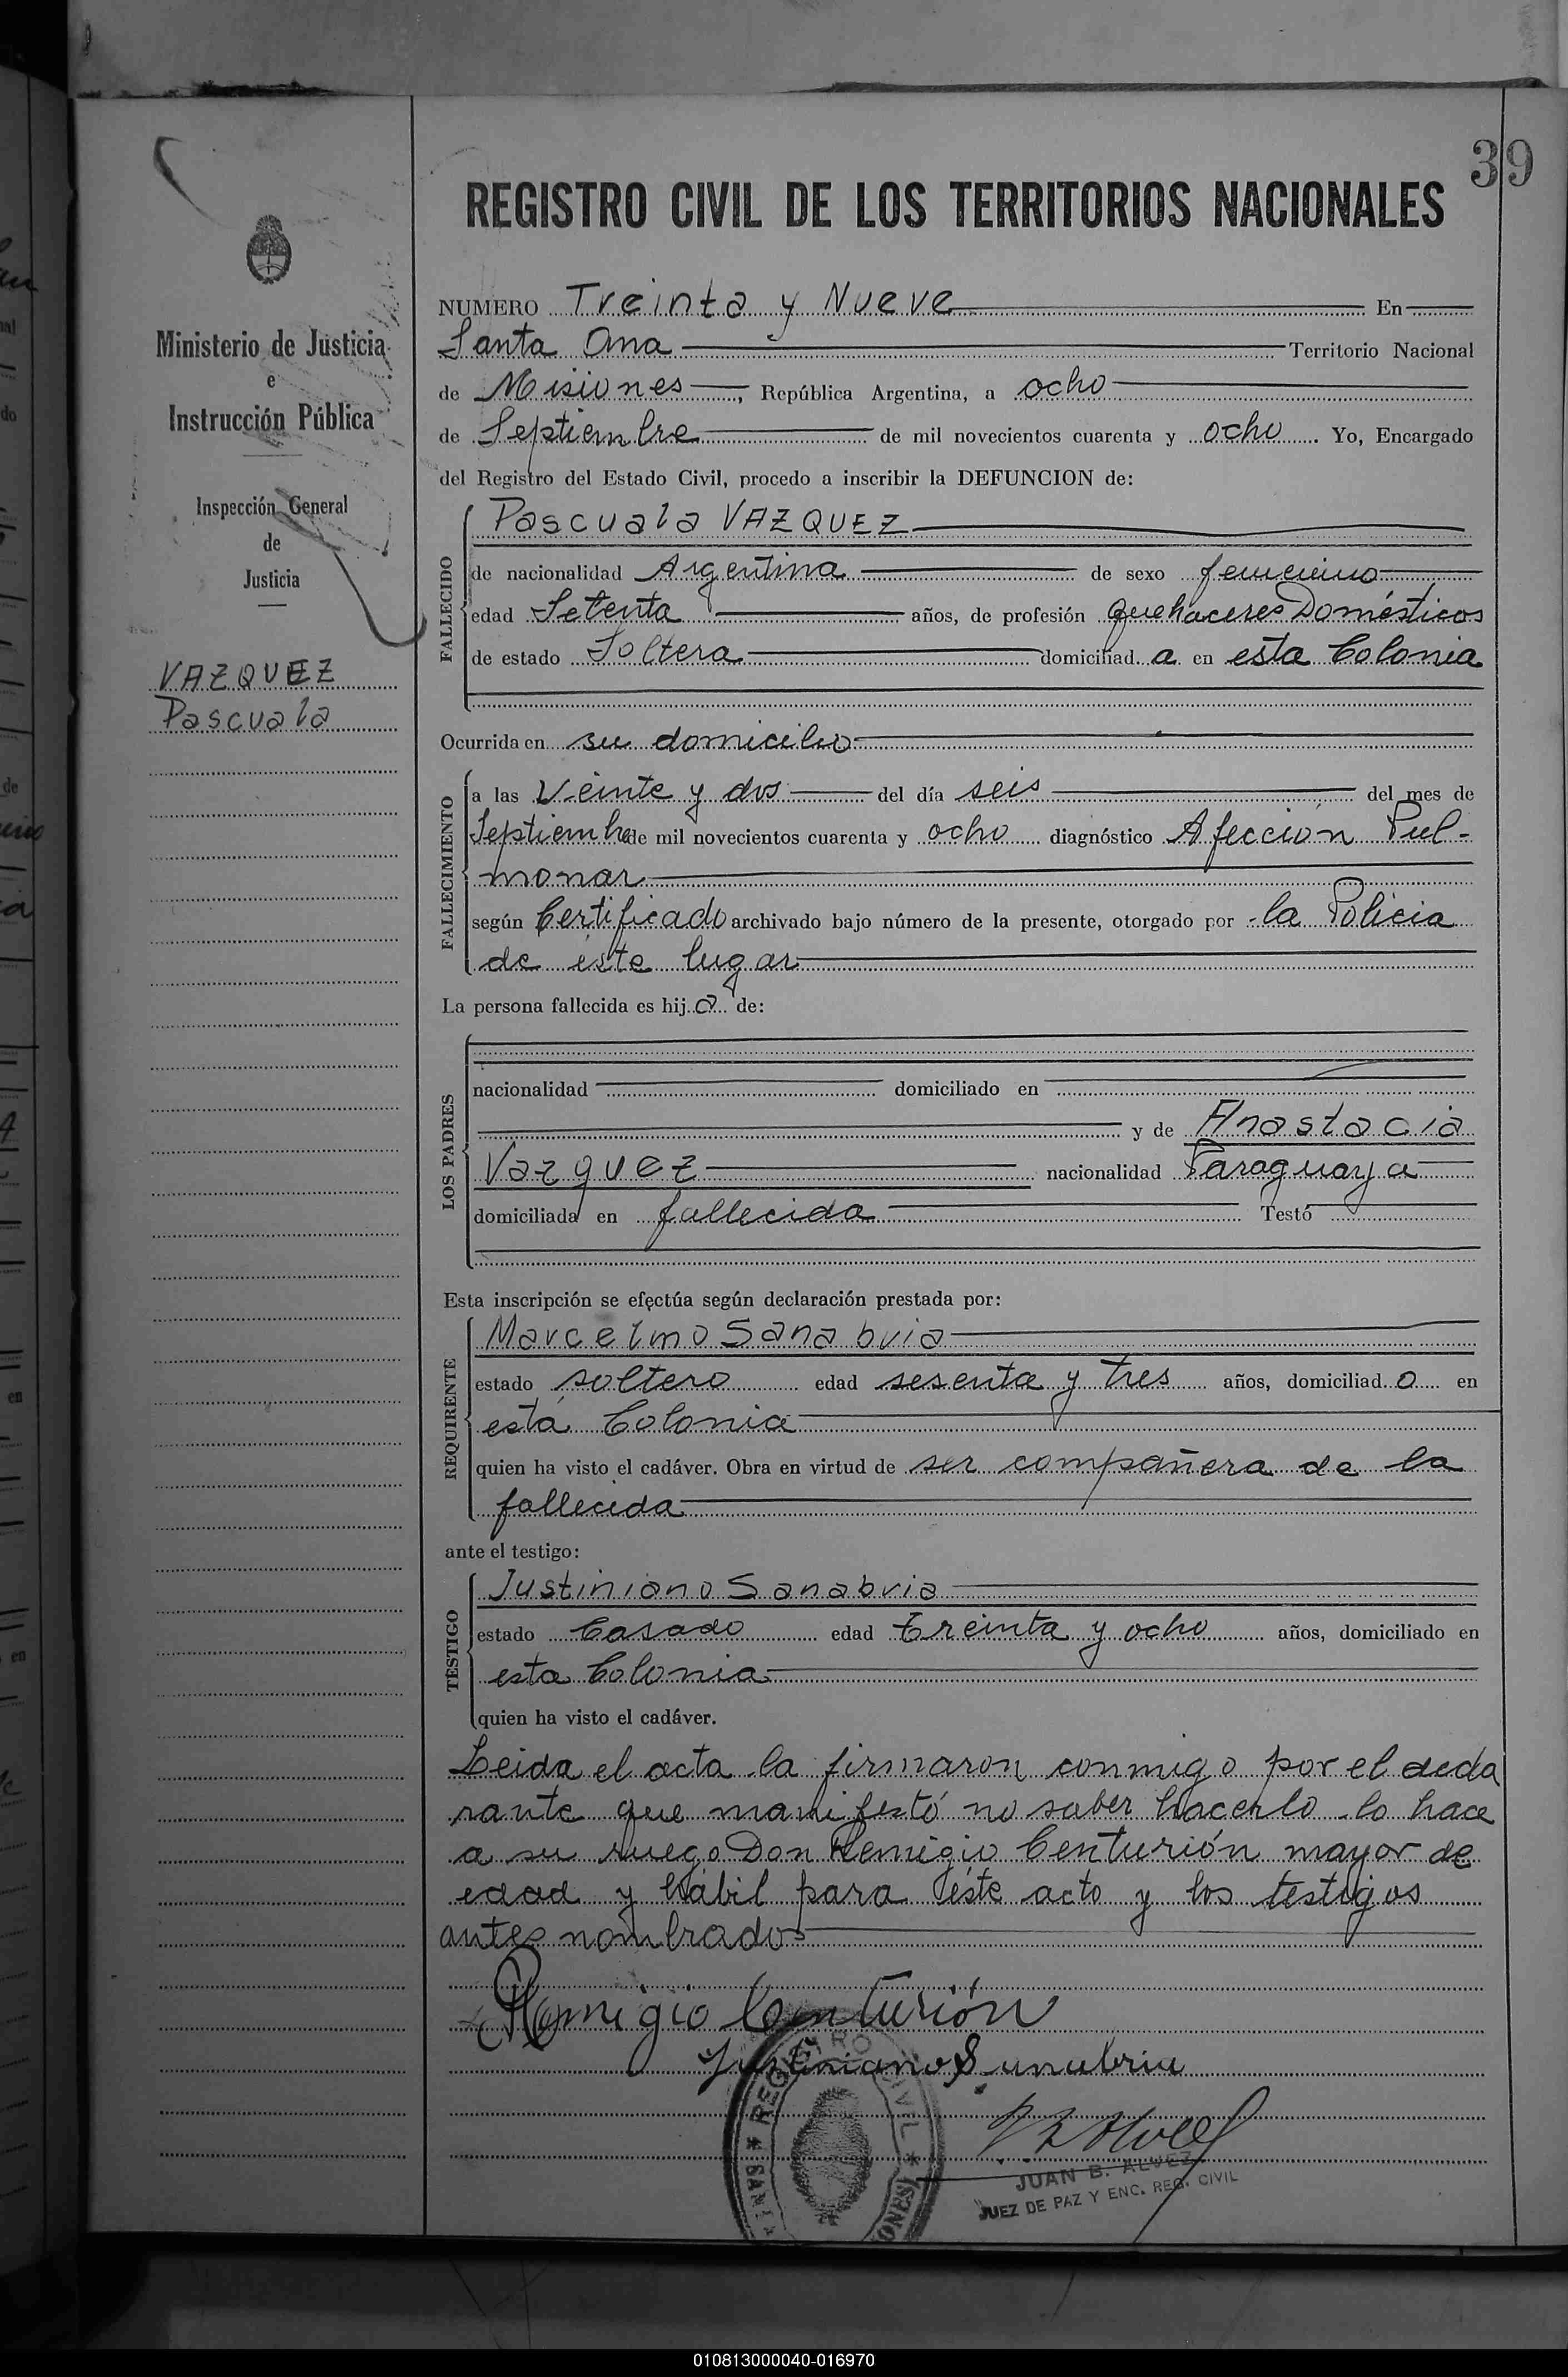 39
REGISTRO CIVIL DE LOS TERRITORIOS NACIONALES
Ministerio de Justicia
e
Instrucción Pública
Inspección General
de
Justicia
VAZQUEZ
Pascuala
NUMERO Treinta y Nueve En
Santa Ana Territorio Nacional
de Misiones, República Argentina, a ocho
de Septiembre de mil novecientos cuarenta y ocho. Yo, Encargado
del Registro del Estado Civil, procedo a inscribir la DEFUNCION de:
Pascuala VAZQUEZ
FALLECIDO
de nacionalidad Argentina de sexo femenino
edad Setenta años, de profesión Quehaceres Domésticos
de estado Soltera domiciliad a en esta Colonia
Ocurrida en su domicilio
FALLECIMIENTO
a las Veinte y dos del día seis del mes de
Septiembre de mil novecientos cuarenta y ocho diagnóstico Afección Pul-
monar
según Certificado archivado bajo número de la presente, otorgado por la Policia
de éste lugar
La persona fallecida es hij a de:
LOS PADRES
nacionalidad domiciliado en
y de Anastacia
Vazquez nacionalidad Paraguaya
domiciliada en fallecida Testó
Esta inscripción se efectúa según declaración prestada por:
Marcelino Sanabria
REQUIRENTE
estado soltero edad sesenta y tres años, domiciliad o en
esta Colonia
quien ha visto el cadáver. Obra en virtud de ser compañera de la
fallecida
ante el testigo:
Justiniano Sanabria
TESTIGO
estado Casado edad treinta y ocho años, domiciliado en
esta Colonia
quien ha visto el cadáver.
Leida el acta la firmaron conmigo por el decla
rante que manifestó no saber hacerlo lo hace
a su ruego Don Remigio Centurión mayor de
edad y hábil para éste acto y los testigos
antes nombrados
Remigio Centurión
Justiniano Sanabria
REGISTRO CIVIL
JUAN B. ALVEZ
JUEZ DE PAZ Y ENC. REG. CIVIL
010813000040-016970